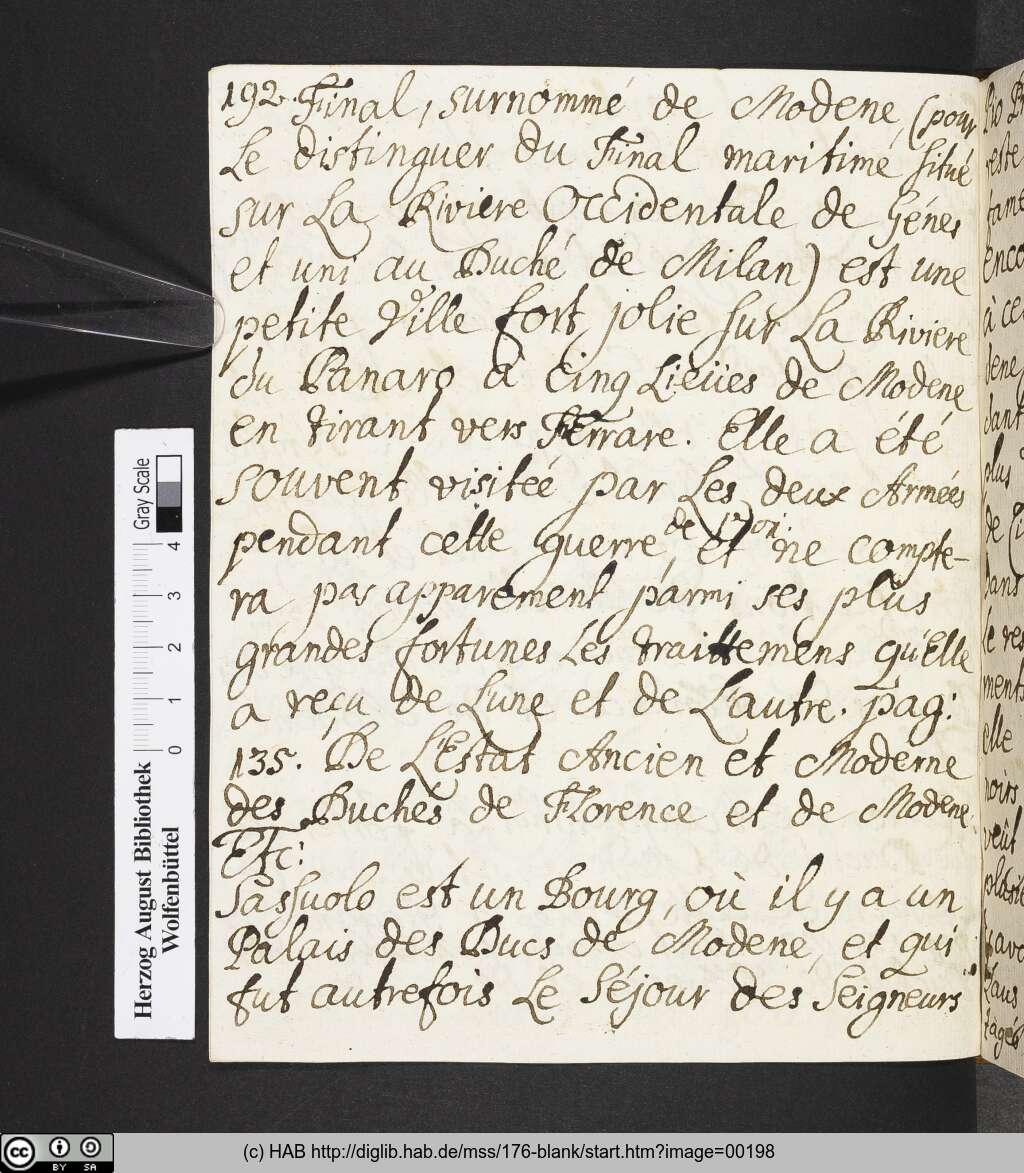 192. Final, surnommé de Modene, (pour
Le distinguer du Final maritime situé
sur La Riviere Occidentale de Génes
et uni au Duché de Milan) est une
petite Ville fort jolie sur La Riviere
du Panaro à Cinq Lieües de Modene
en tirant vers Ferrare. Elle a été
souvent visitée par Les deux Armées
de 1701.
pendant cette guerre, et ne compte-
ra pas apparement parmi ses plus
grandes fortunes Les traittemens qu'Elle
a reçu de Lune et de L'autre. pag:
135. De L'Estat Ancien et Moderne
des Duchés de Florence et de Modene.
Etc:
Sassuolo est un Bourg, où il y a un
Palais des Ducs de Modene, et qui
fut autrefois Le Séjour des Seigneurs
reste
enco
à ce
dant
plus
de
dans
le res
ment
elle
noirs
Herzog August Bibliothek
Wolfenbüttel
0 1 2 3 4
Gray Scale
cc BY SA
(c) HAB http://diglib.hab.de/mss/176-blank/start.htm?image=00198